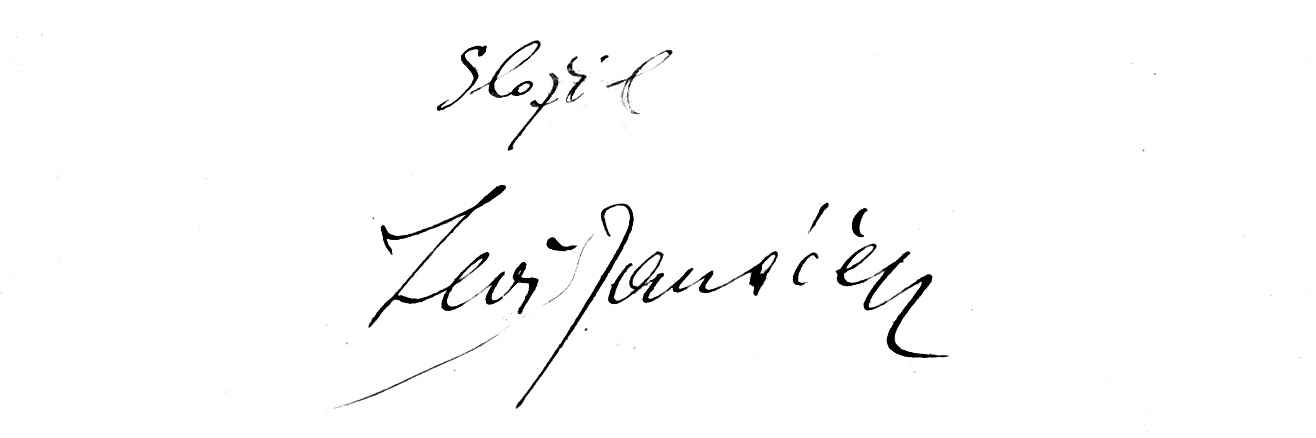 Složil
Leoš Janáček